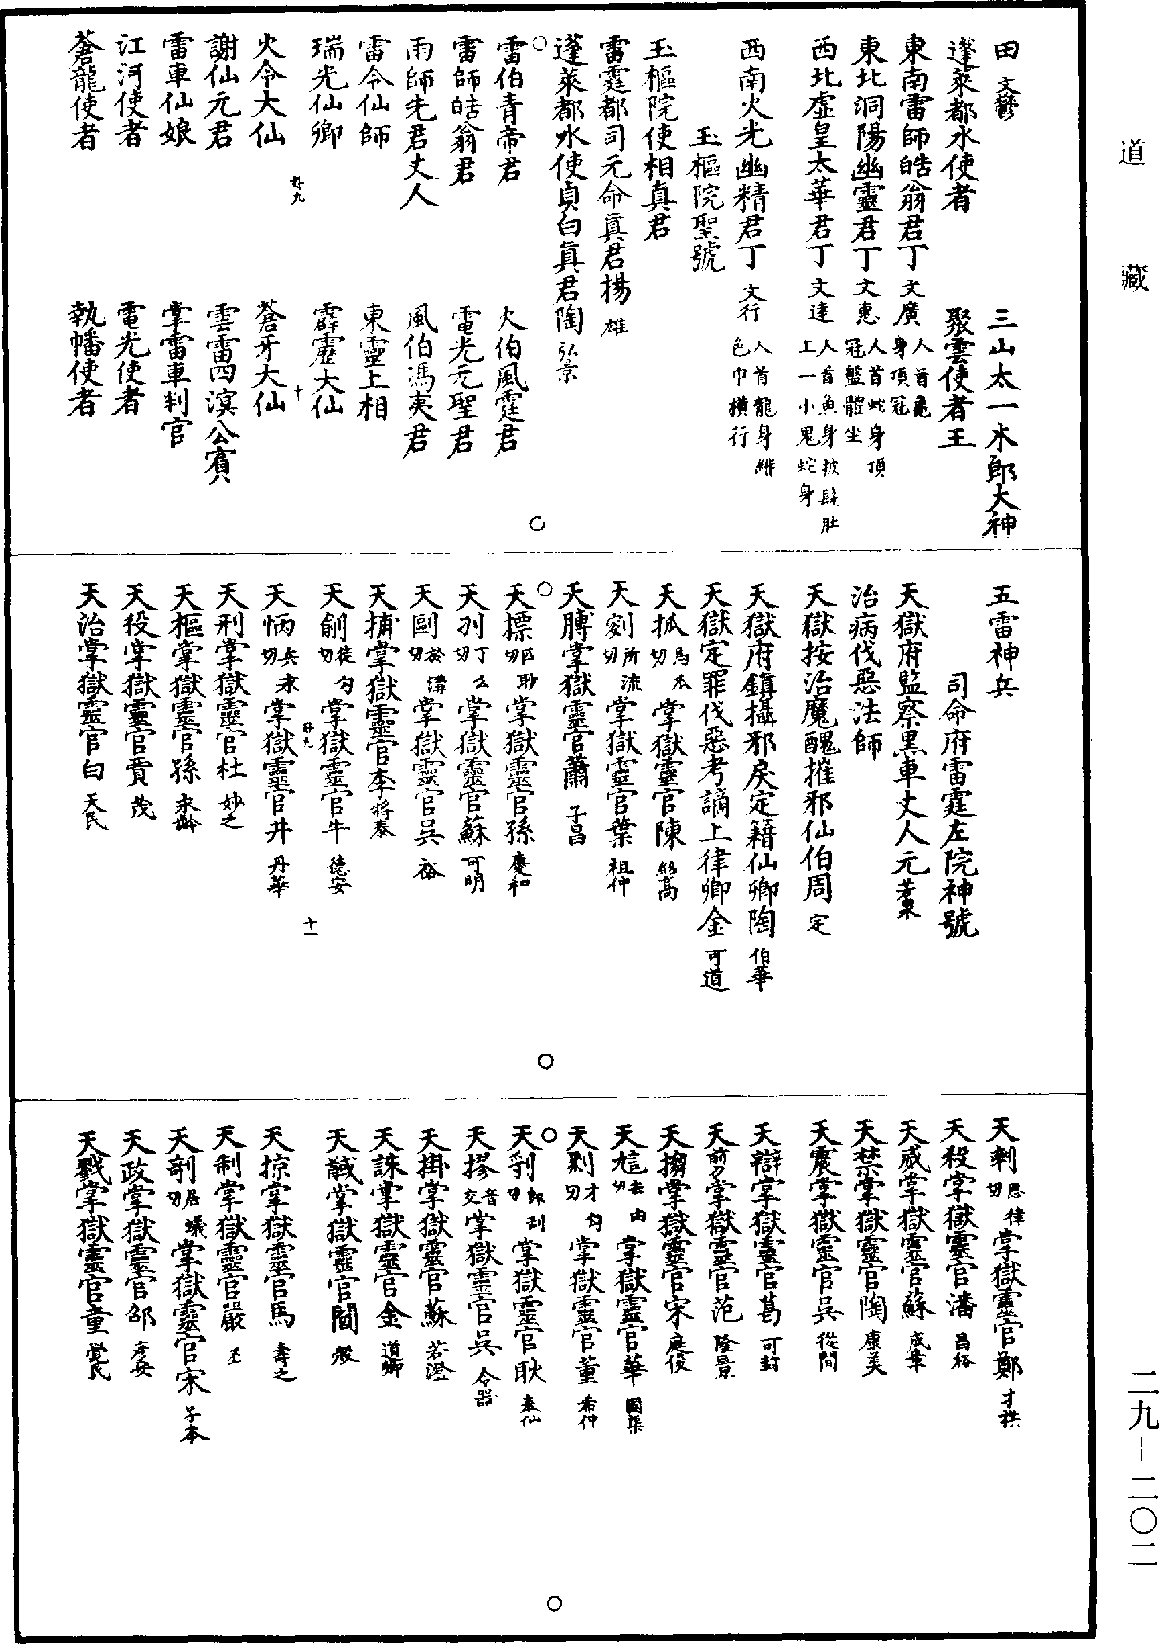 道藏
田文鬱　三山太一木郎大神
蓬萊都水使者　聚雲使者王
東南雷師皓翁君丁文廣人首龜身頂冠
東北洞陽幽靈君丁文惠人首蛇身頂冠盤體坐
西北虛皇太華君丁文達人首魚身披髮肚上一小鬼蛇身
西南火光幽精君丁文行人首龍身緋色巾橫行
玉樞院聖號
玉樞院使相真君
雷霆都司元命真君楊雄
蓬萊都水使貞白真君陶弘景
雷伯青帝君　火伯風霆君
雷師皓翁君　電光元聖君
雨師先君丈人　風伯馮夷君
雷令仙師　東靈上相
瑞光仙卿　霹靂大仙
火令大仙　蒼牙大仙
謝仙元君　雲雷四溟公賓
雷車仙娘　掌雷車判官
江河使者　電光使者
蒼龍使者　執幡使者
五雷神兵
司命府雷霆左院神號
天獄府監察黑車丈人元
治病伐惡法師
天獄按治魔醜摧邪仙伯周定
天獄府鎮攝邪戾定籍仙卿陶伯華
天獄定罪伐惡考謫上律卿金可道
天掌獄靈官陳
天掌獄靈官葉祖仲
天膊掌獄靈官蕭子昌
天摽掌獄靈官孫慶和
天掌獄靈官蘇可明
天掌獄靈官吳裕
天捕掌獄靈官李將泰
天掌獄靈官牛德安
天怲掌獄靈官井丹華
天刑掌獄靈官杜妙之
天樞掌獄靈官孫
天役掌獄靈官賁茂
天治掌獄靈官白天民
天掌獄靈官鄭才
天殺掌獄靈官潘昌裕
天威掌獄靈官蘇成章
天禁掌獄靈官陶康美
天震掌獄靈官吳從問
天辯掌獄靈官葛可封
天掌獄靈官范隆景
天掌獄靈官宋庭俊
天掌獄靈官華
天掌獄靈官董希仲
天掌獄靈官耿泰仙
天摎音交掌獄靈官吳令器
天掛掌獄靈官蘇若澄
天誅掌獄靈官金道卿
天誠掌獄靈官閻
天掠掌獄靈官馬壽之
天制掌獄靈官嚴丕
天掌獄靈官宋子本
天政掌獄靈官邵彥安
天戮掌獄靈官童覺民
二九－二〇二